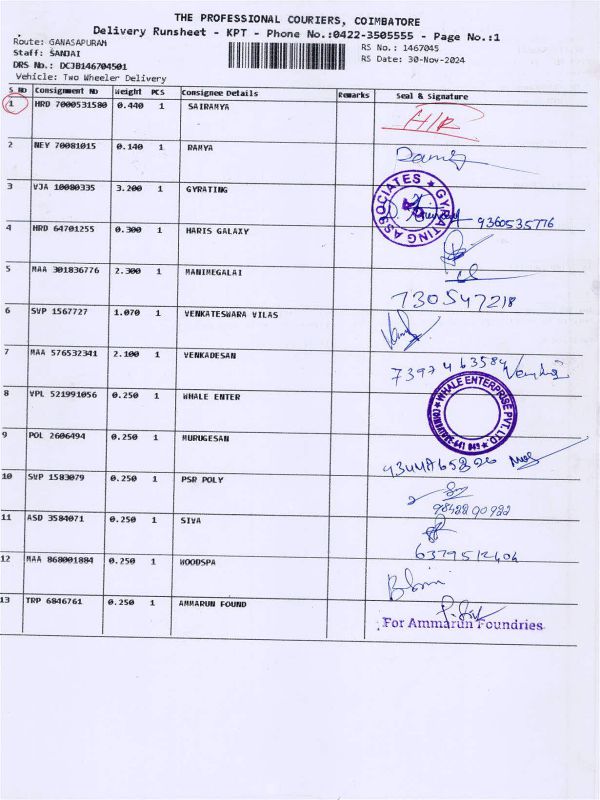 THE PROFESSIONAL COURIERS, COIMBATORE
Delivery Runsheet - KPT - Phone No.:0422-3505555 - Page No.:1
Route: GANASAPURAM
Staff: SANJAI
DRS No.: DCJB146704501
Vehicle: Two Wheeler Delivery
RS No.: 1467045
RS Date: 30-Nov-2024
S No Consignment No Weight PCS Consignee Details Remarks Seal & Signature
1 HRD 7000531580 0.440 1 SAIRAMYA
2 NEY 70081015 0.140 1 RAMYA
3 VJA 10080335 3.200 1 GYRATING GYRATING ASSOCIATES 9360535776
4 HRD 64701255 0.300 1 HARIS GALAXY
5 MAA 301836776 2.300 1 MANIMEGALAI 730547218
6 SVP 1567727 1.070 1 VENKATESWARA VILAS
7 MAA 576532341 2.100 1 VENKADESAN 7397463584
8 VPL 521991056 0.250 1 WHALE ENTER WHALE ENTERPRISE PVT. LTD.
9 POL 2606494 0.250 1 MURUGESAN
10 SVP 1583079 0.250 1 PSR POLY 9842290922
11 ASD 3584071 0.250 1 SIVA
12 MAA 868001884 0.250 1 WOODSPA
13 TRP 6846761 0.250 1 AMMARUN FOUND
For Ammarun Foundries